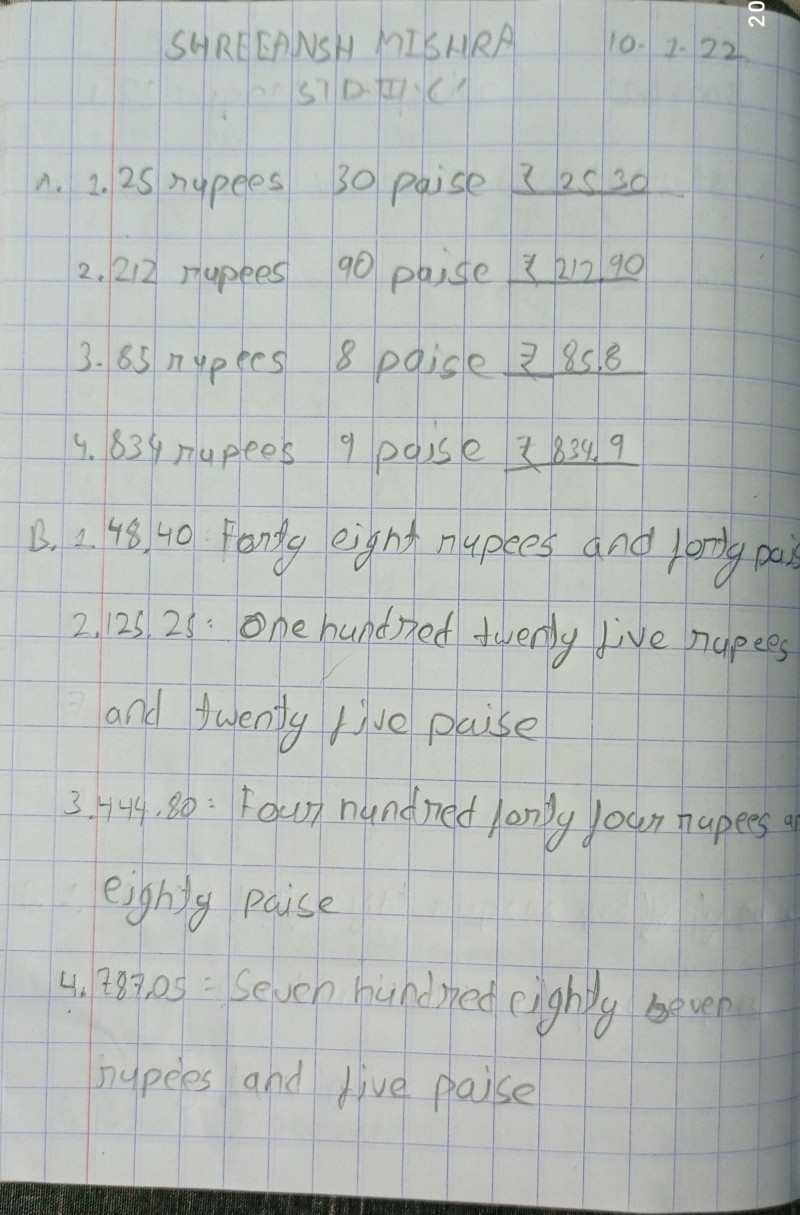 20
SHREEANSH MISHRA 10.1.22
STD III 'C'
A. 1. 25 rupees 30 paise ₹ 25.30
2. 212 rupees 90 paise ₹ 212.90
3. 85 rupees 8 paise ₹ 85.8
4. 834 rupees 9 paise ₹ 834.9
B. 1. 48.40: Forty eight rupees and forty pais
2. 125.25: One hundred twenty five rupees
and twenty five paise
3. 444.80: Four hundred forty four rupees an
eighty paise
4. 787.05 = Seven hundred eighty seven
rupees and five paise